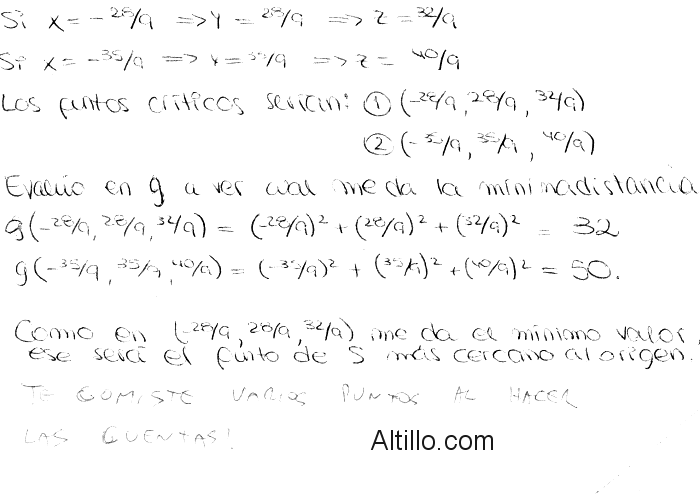 Si x = -28/9 => Y = 28/9 => Z = 32/9
Si x = -35/9 => Y = 35/9 => Z = 40/9
Los puntos críticos serían: ① (-28/9, 28/9, 32/9)
② (-35/9, 35/9, 40/9)
Evalúo en g a ver cual me da la minima distancia
g(-28/9, 28/9, 32/9) = (-28/9)² + (28/9)² + (32/9)² = 32
g(-35/9, 35/9, 40/9) = (-35/9)² + (35/9)² + (40/9)² = 50.
Como en (-28/9, 28/9, 32/9) me da el mínimo valor,
ese será el punto de S más cercano al origen.
TE COMISTE VARIOS PUNTOS AL HACER
LAS CUENTAS!
Altillo.com